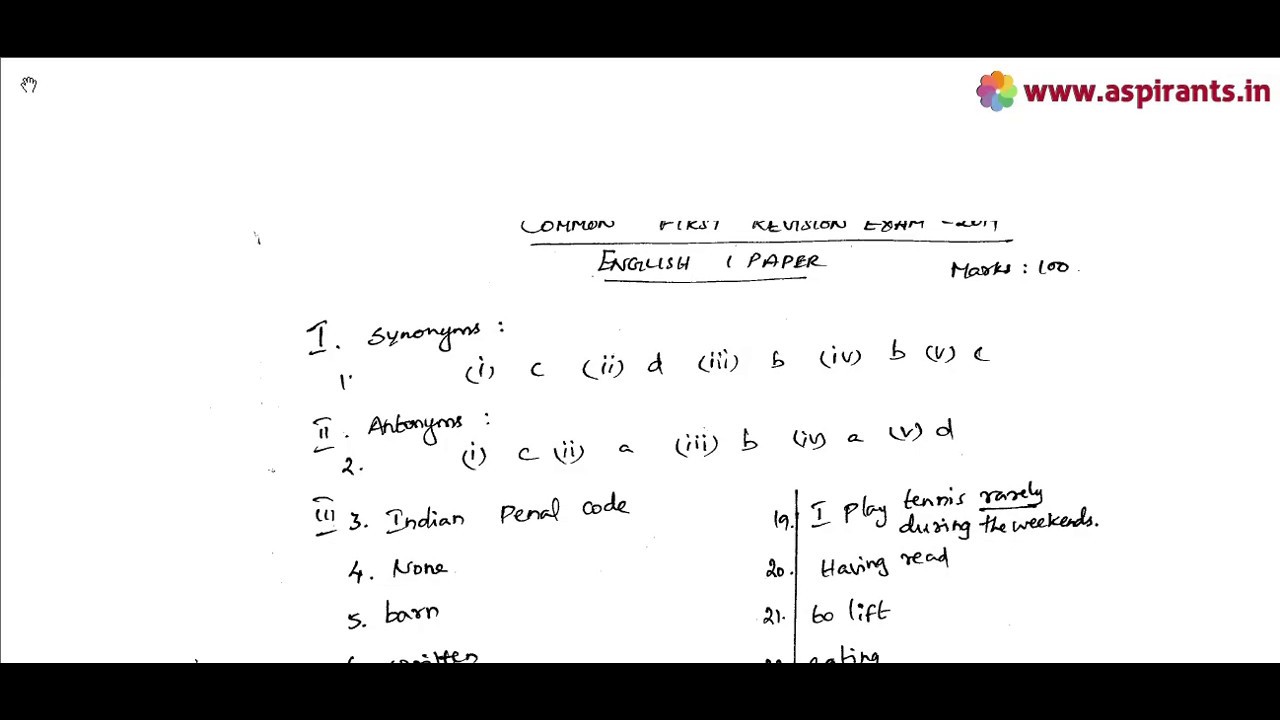 www.aspirants.in
COMMON FIRST REVISION EXAM -2019
ENGLISH I PAPER
Marks : 100.
I. Synonyms :
1. (i) c (ii) d (iii) b (iv) b (v) c
II. Antonyms :
2. (i) c (ii) a (iii) b (iv) a (v) d
III 3. Indian Penal code
4. None
5. barn
19. I Play tennis rarely
during the weekends.
20. Having read
21. to lift
eating